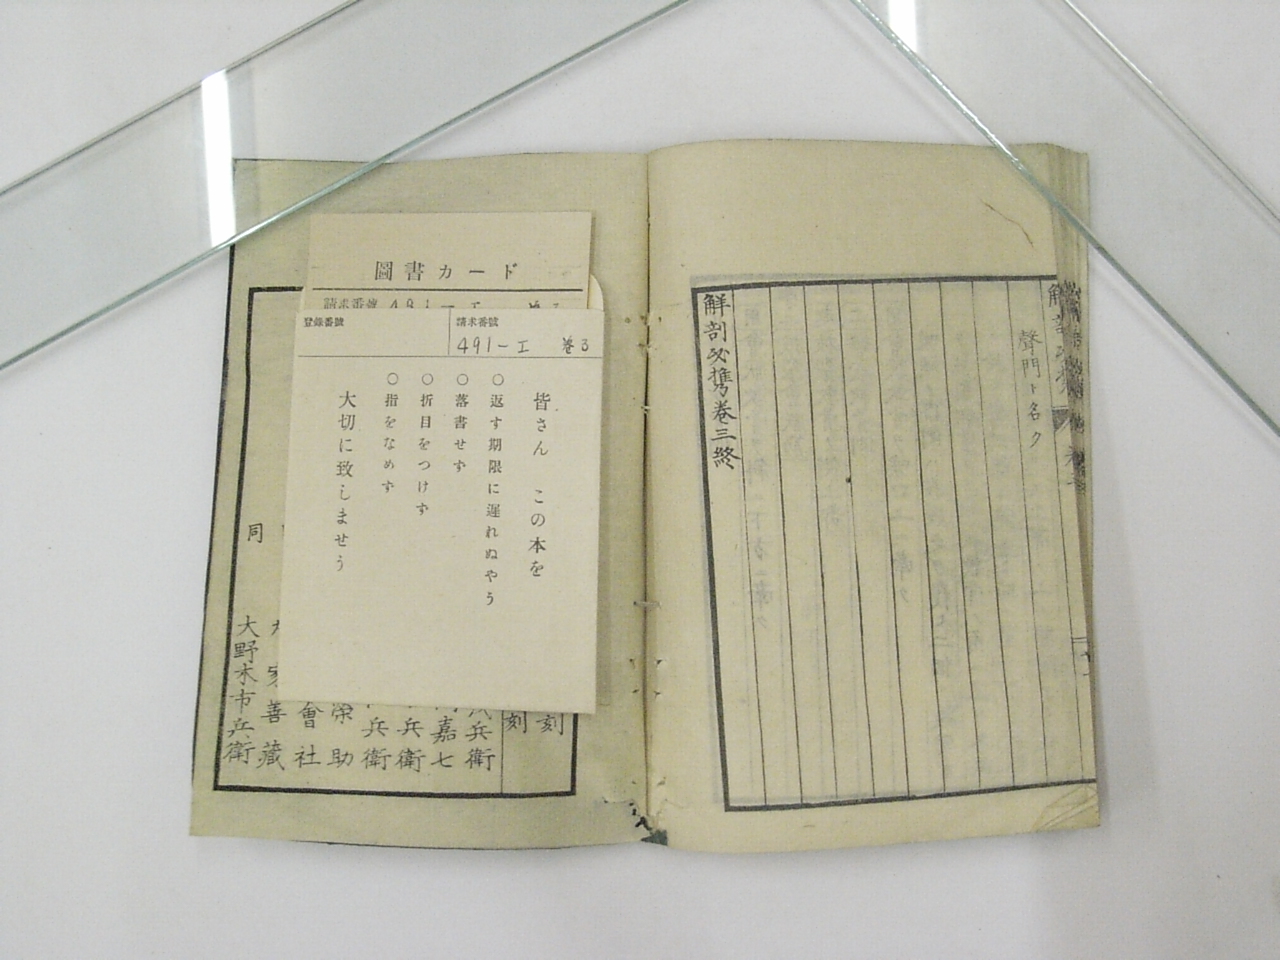 聲門ト名ク
解剖必携卷三終
圖書カード
請求番號 491-エ 巻3
登錄番號
請求番號
491-エ 巻3
皆さん この本を
○返す期限に遅れぬやう
○落書せず
○折目をつけず
○指をなめず
大切に致しませう
刻
刻
兵衛
嘉七
兵衛
兵衛
榮助
會社
善藏
同 大野木市兵衛